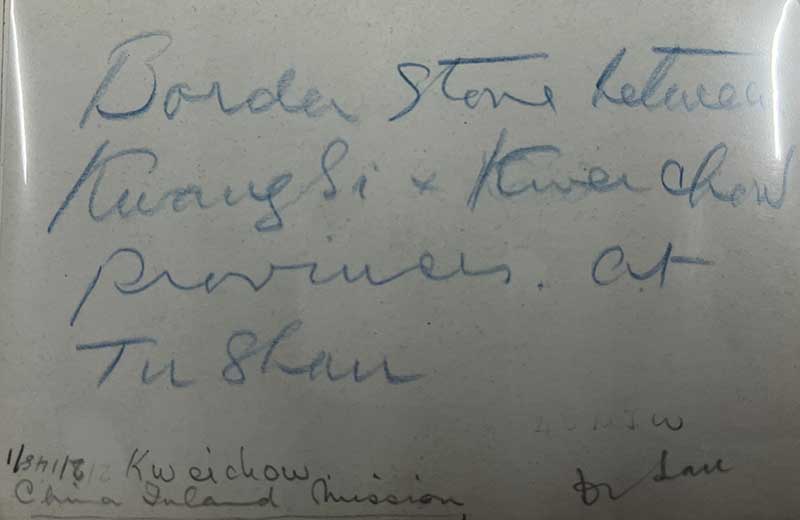 Border Stone between
KwangSi & Kweichow
Provinces. at
Tu Shan
Kweichow.
China Inland Mission